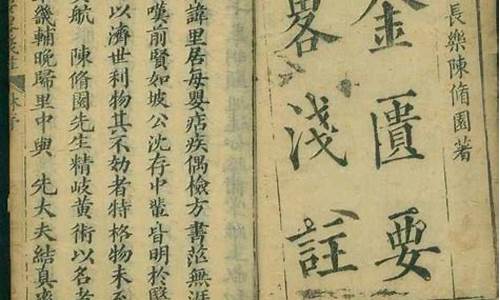 長樂陳脩園著
金匱要
畧淺註
諱里居每嬰痁疾偶檢方書茫無涯
嘆前賢如坡公沈存中輩皆明於醫
以濟世利物其不効者特格物未至
航 陳脩園先生精岐黃術以名孝
畿輔晚歸里中與 先大夫結真率
林序